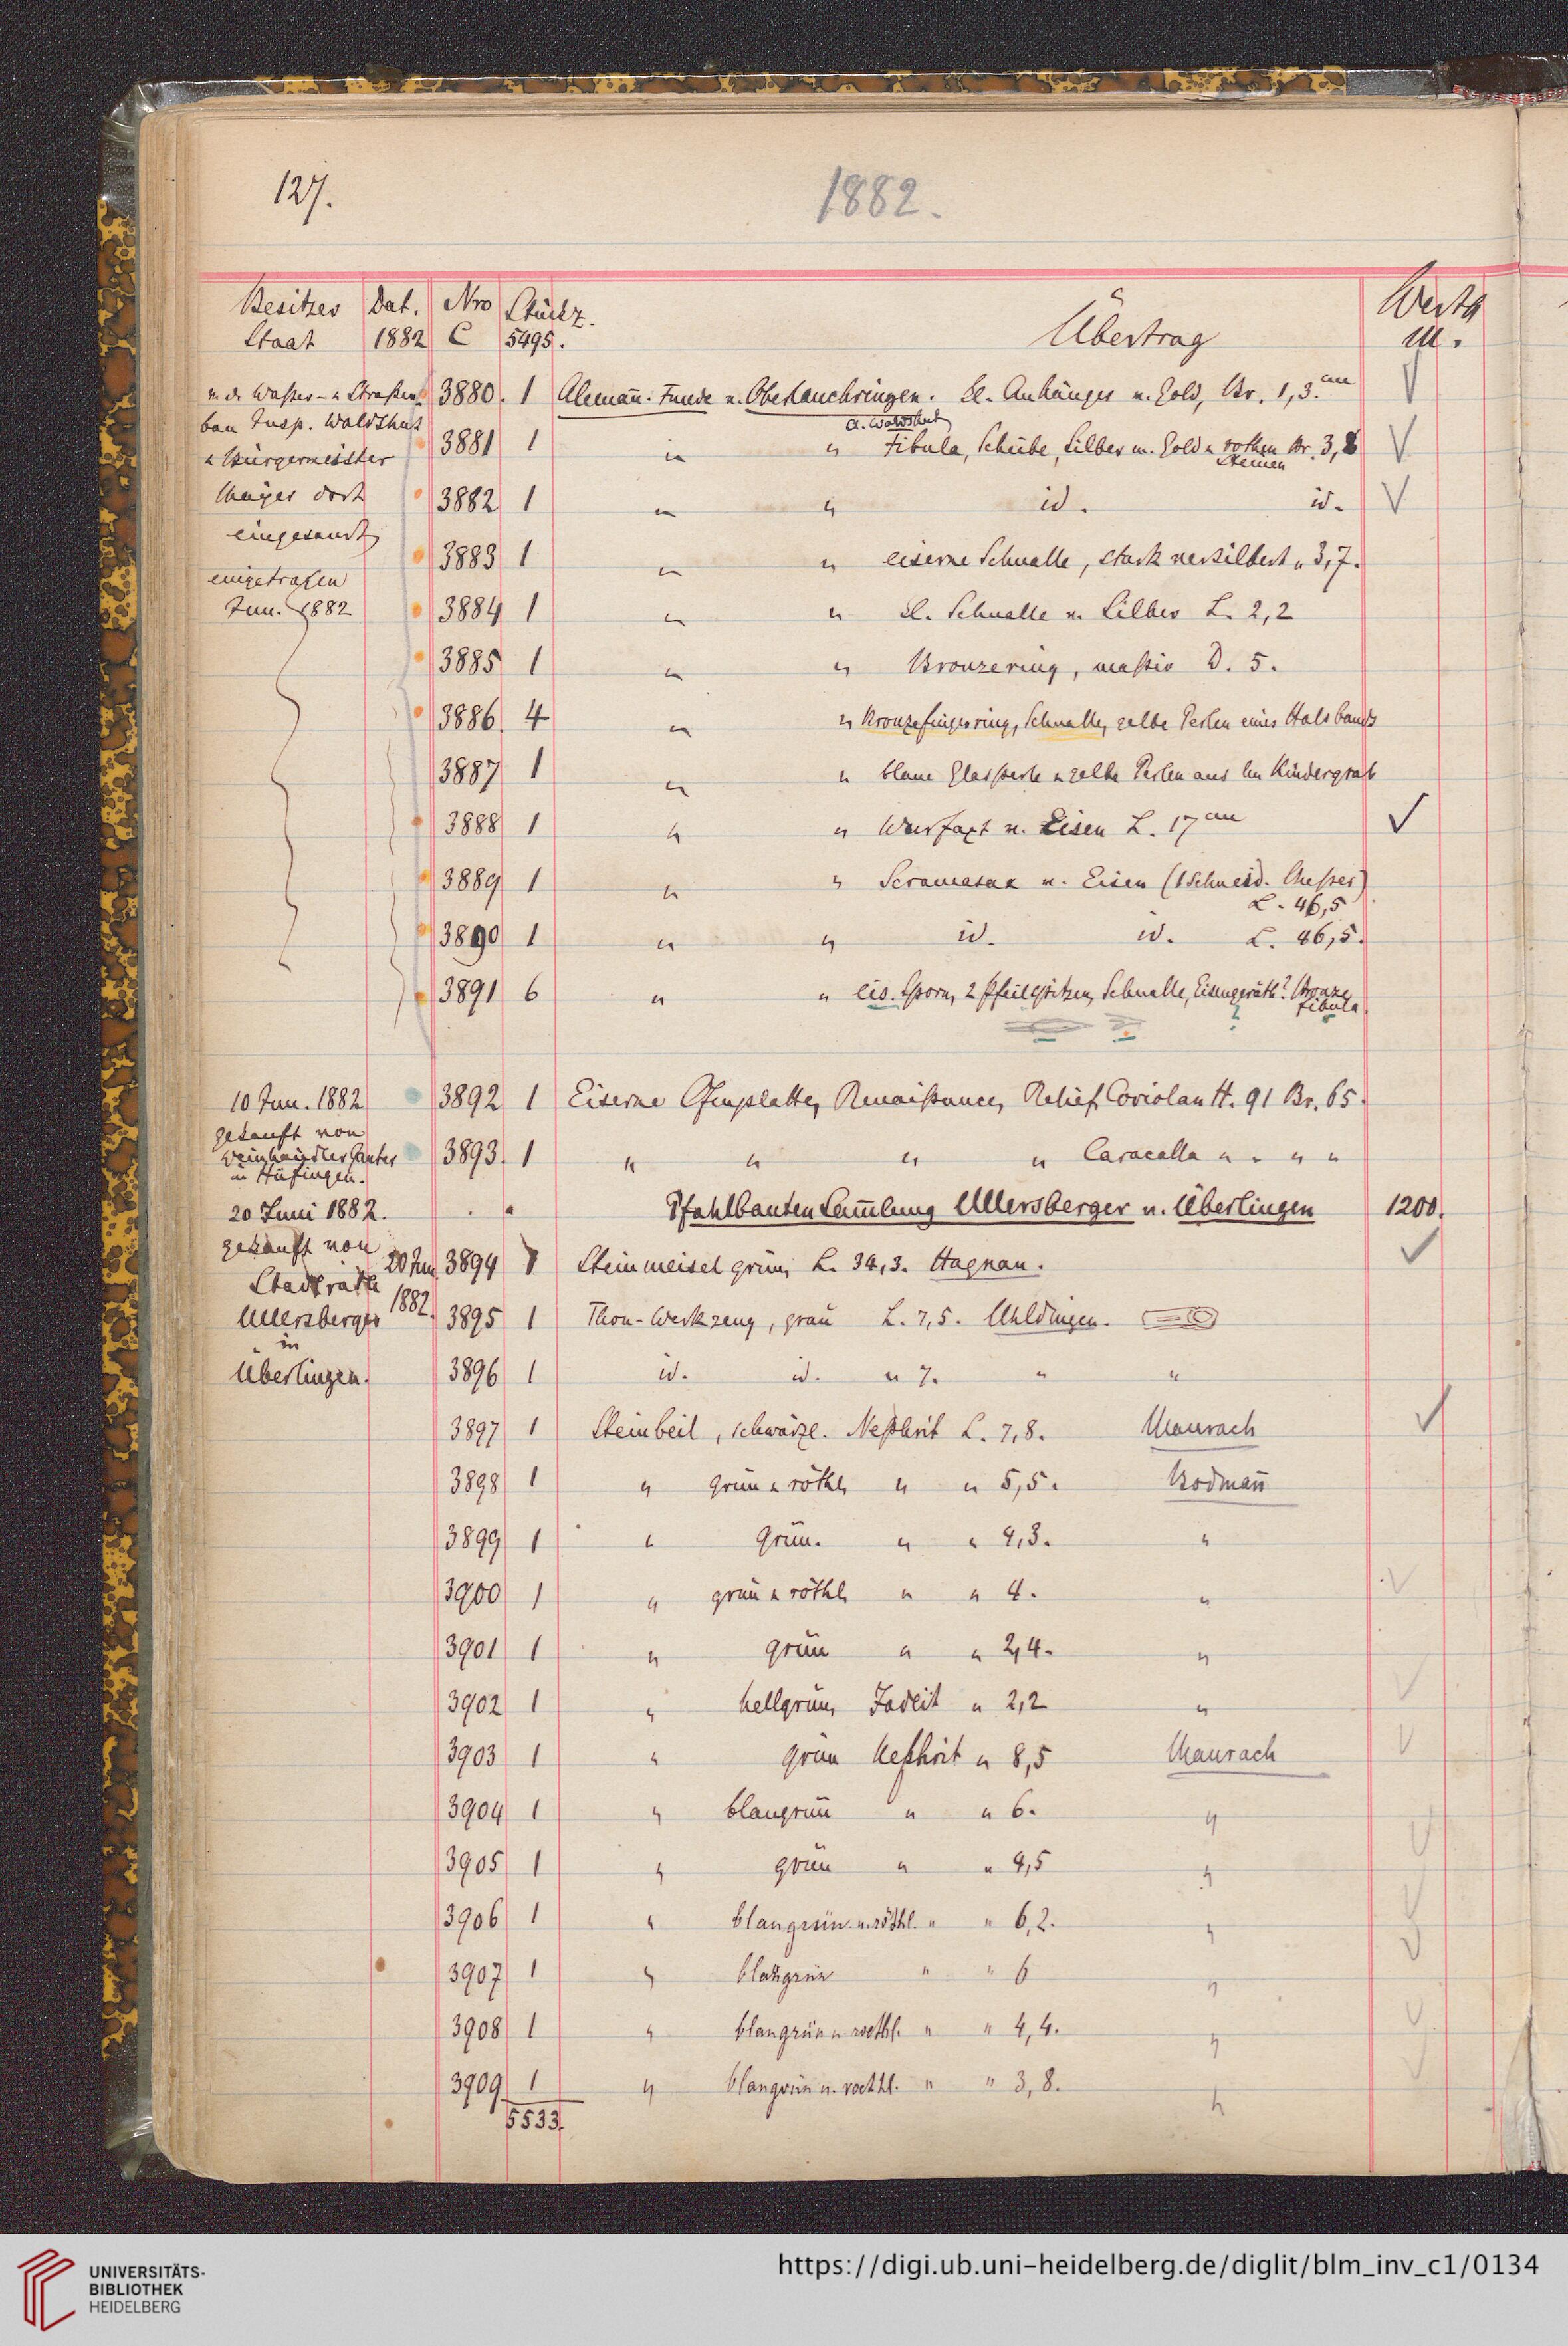 127.
1882.
Besitzer Dat. Nro Stückz. Werth
Staat 1882 C 5495. Übertrag M.
3880. 1 Alemañ. Funde v. Oberlauchringen. Kl. Anhänger v. Gold, Br. 1,3. cm
A. Waldshut
3881 1 " " Fibula, Scheibe, Silber m. Gold u rothen Br. 3,8
Steinen
3882 1 " " id. id.
3883 1 " " eiserne Schnalle, stark versilbert " 3,7.
3884 1 " " kl. Schnalle v. Silber L. 2,2
3885 1 " " Bronzering, massiv D. 5.
3886. 4 " " Bronzefingerring, Schnalle, gelbe Perlen eines Halsbands
3887 1 " " blaue Glasperle u gelbe Perlen aus Kindergrab
3888 1 " " Wurfaxt v. Eisen L. 17 cm
3889 1 " " Scramasax v. Eisen (1 Schneid. Messer)
L. 46,5
3890 1 " " id. id. L. 46,5.
3891 6 " " eis. Sporn, 2 Pfeilspitzen, Schnalle, Eisengeräth? Bronze
fibula
v. d. Wasser- u Straßen-
bau Insp. Waldshut
u Bürgermeister
Mayer dort
eingesandt
eingetragen
Jun. 1882
10 Jun. 1882 3892 1 Eiserne Ofenplatte, Renaissance, Relief Coriolan H. 91 Br. 65.
gekauft von
Weinhändler Ganter
in Hüfingen.
3893. 1 " " " " Caracalla " " " "
20 Juni 1882. Pfahlbauten Sam̄lung Ullersberger v. Überlingen 1200.
gekauft von
Stadtrath
Ullersberger
in
Überlingen.
20 Jun. 1882.
3894 1 Steinmeisel grün, L. 34,3. Hagnau.
3895 1 Thon-Werkzeug, grau L. 7,5. Uhldingen.
3896 1 id. id. " 7. " "
3897 1 Steinbeil, schwärzl. Nephrit L. 7,8. Maurach
3898 1 " grün u röthl. " " 5,5. Bodmañ
3899 1 " grün. " " 4,3. "
3900 1 " grün u röthl. " " 4. "
3901 1 " grün " " 2,4. "
3902 1 " hellgrün, Jadeit " 2,2 "
3903 1 " grün Nephrit " 8,5 Maurach
3904 1 " blaugrün " " 6. "
3905 1 " grün " " 4,5 "
3906 1 " blaugrün u. röthl. " " 6,2. "
3907 1 " blaugrün " " 6 "
3908 1 " blaugrün u. roethl. " " 4,4. "
3909 1 " blaugrün u. roethl. " " 3,8. "
5533.
UNIVERSITÄTS-
BIBLIOTHEK
HEIDELBERG
https://digi.ub.uni-heidelberg.de/diglit/blm_inv_c1/0134